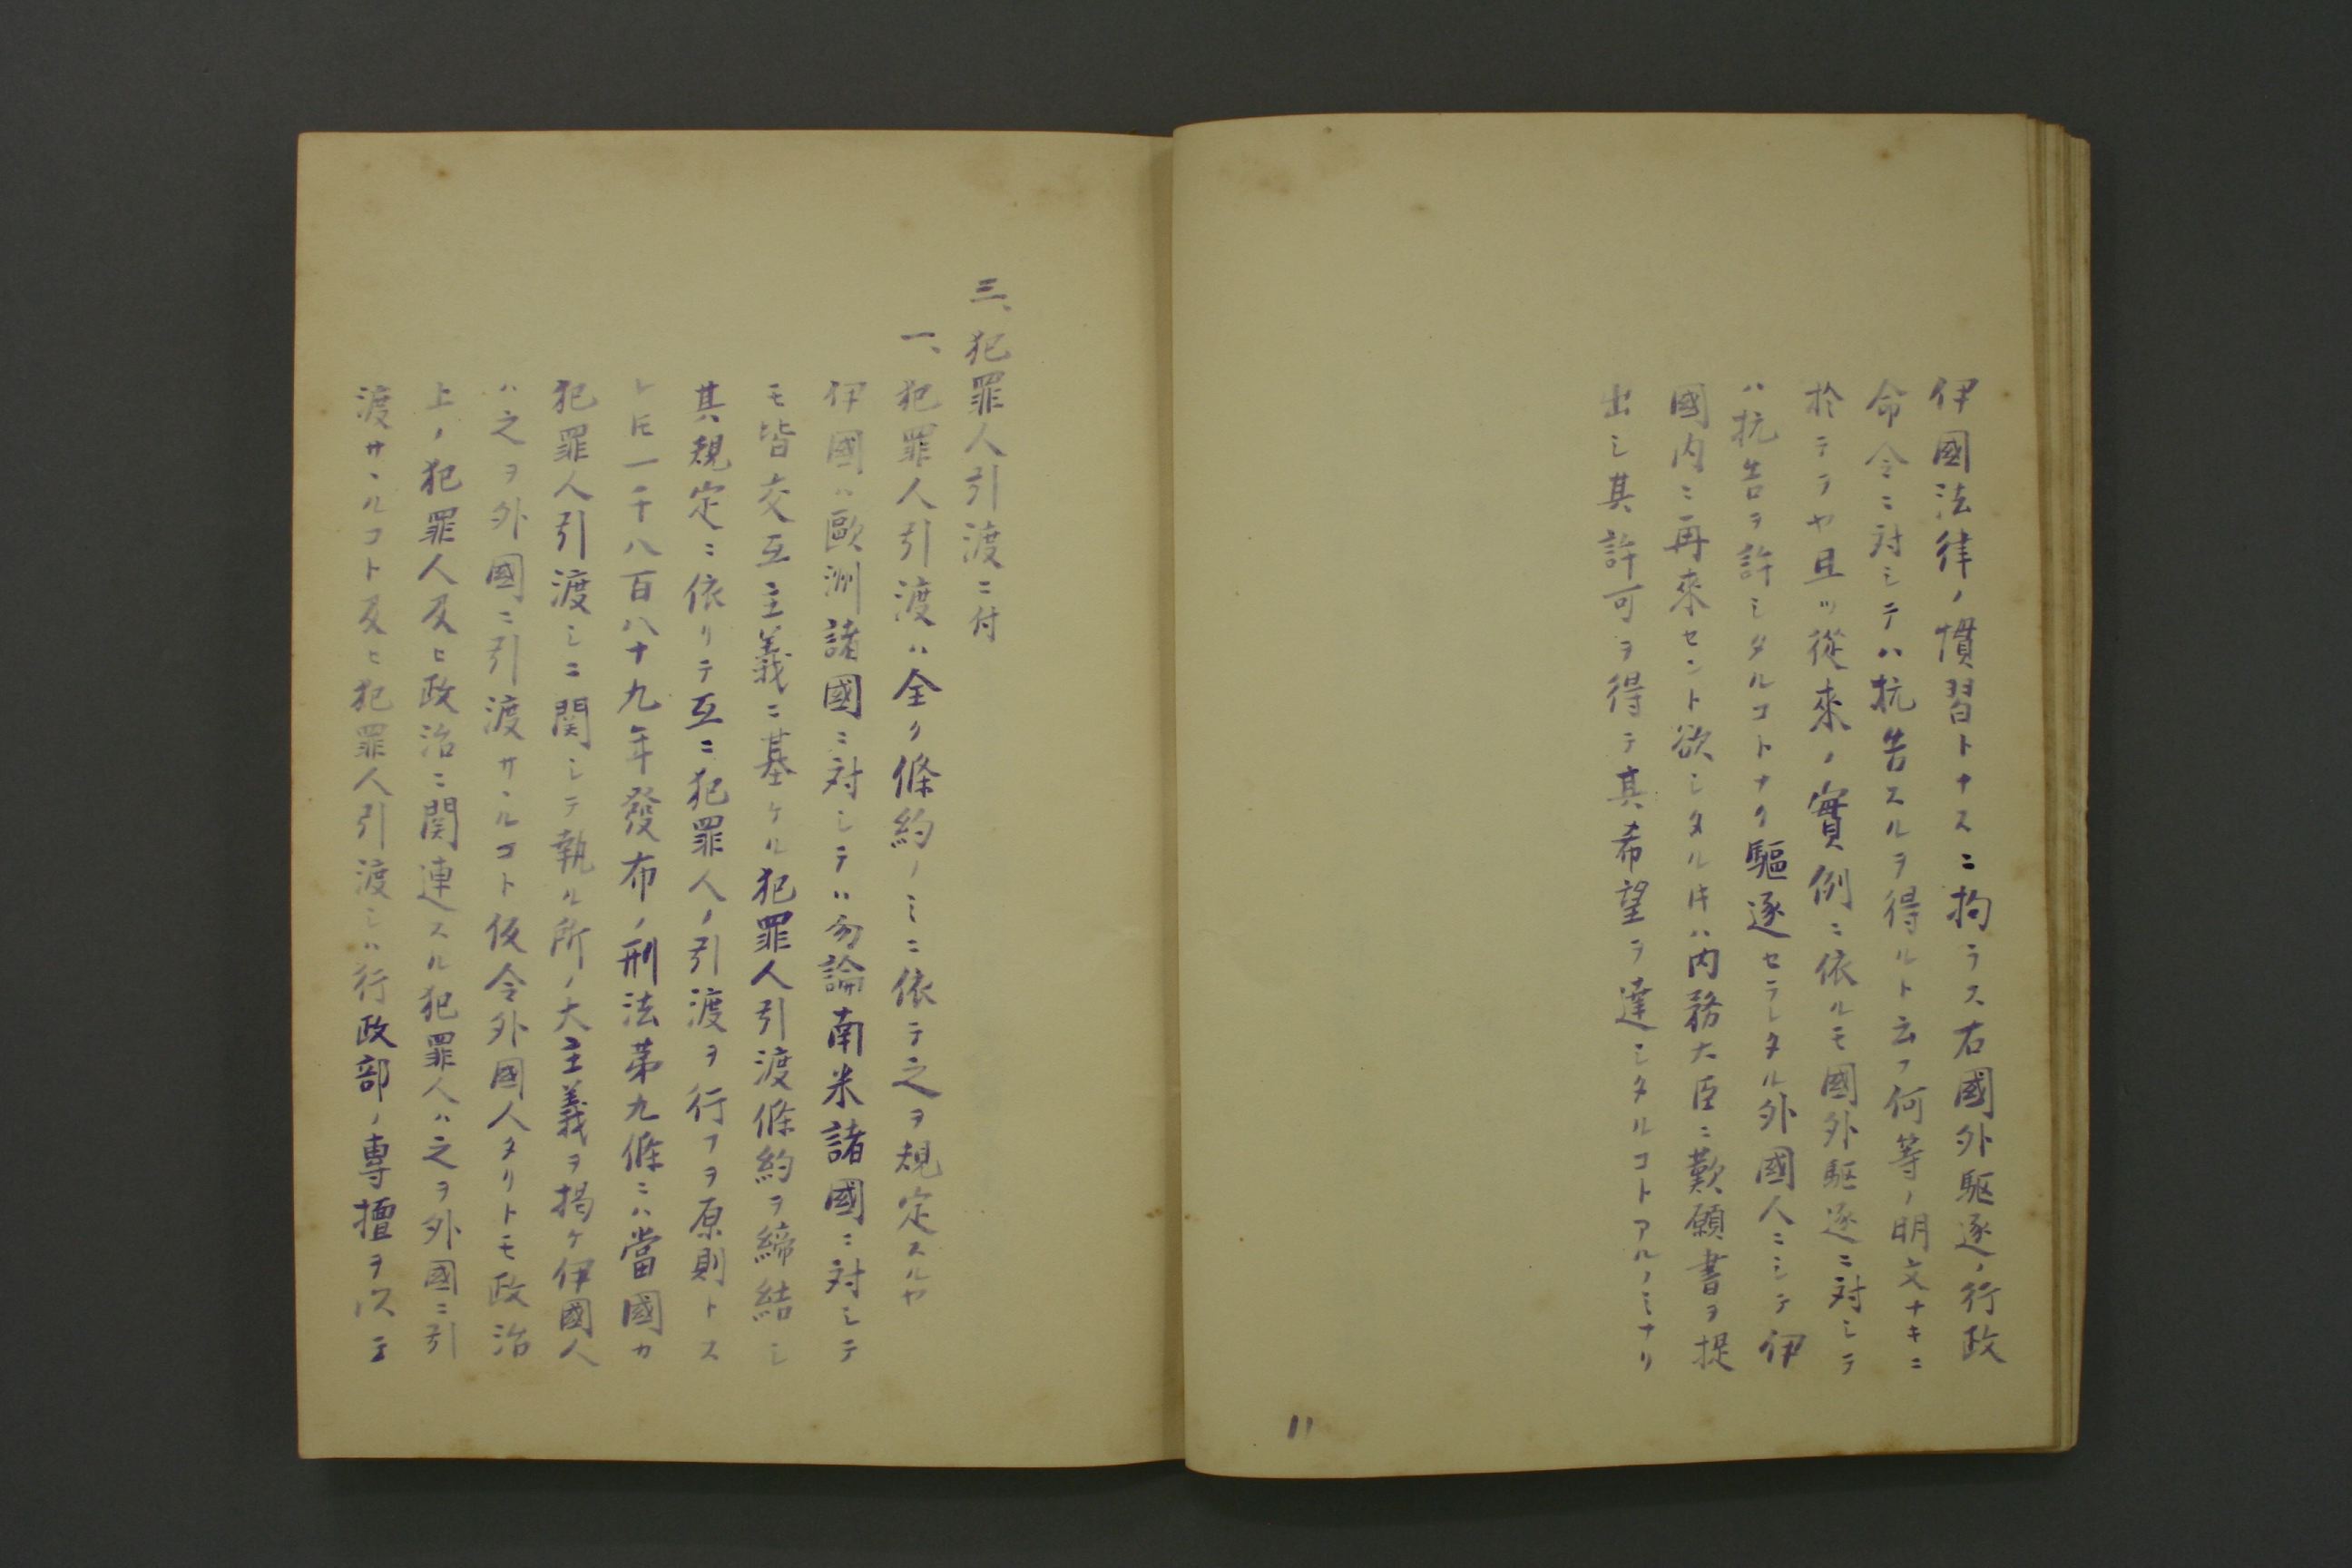 伊國法律ノ慣習トナスニ拘ラス右國外駆逐ノ行政
命令ニ対シテハ抗告スルヲ得ルト云フ何等ノ明文ナキニ
於テヲヤ且ツ從來ノ實例ニ依ルモ國外駆逐ニ対シテ
ハ抗告ヲ許シタルコトナク驅逐セラレタル外國人ニシテ伊
國内ニ再來セント欲シタル𪜈ハ内務大臣ニ歎願書ヲ提
出シ其許可ヲ得テ其希望ヲ達シタルコトアルノミナリ
11
三、犯罪人引渡ニ付
一、犯罪人引渡ハ全ク條約ノミニ依テ之ヲ規定スルヤ
伊國ハ歐洲諸國ニ対シテハ勿論南米諸國ニ対シテ
モ皆交互主義ニ基ケル犯罪人引渡條約ヲ締結シ
其規定ニ依リテ互ニ犯罪人ノ引渡ヲ行フヲ原則トス
レ𪜈一千八百八十九年發布ノ刑法第九條ニハ當國カ
犯罪人引渡シニ関シテ執ル所ノ大主義ヲ掲ケ伊國人
ハ之ヲ外國ニ引渡サヽルコト仮令外國人タリトモ政治
上ノ犯罪人及ヒ政治ニ関連スル犯罪人ハ之ヲ外國ニ引
渡サヽルコト及ヒ犯罪人引渡シハ行政部ノ専擅ヲ以テ